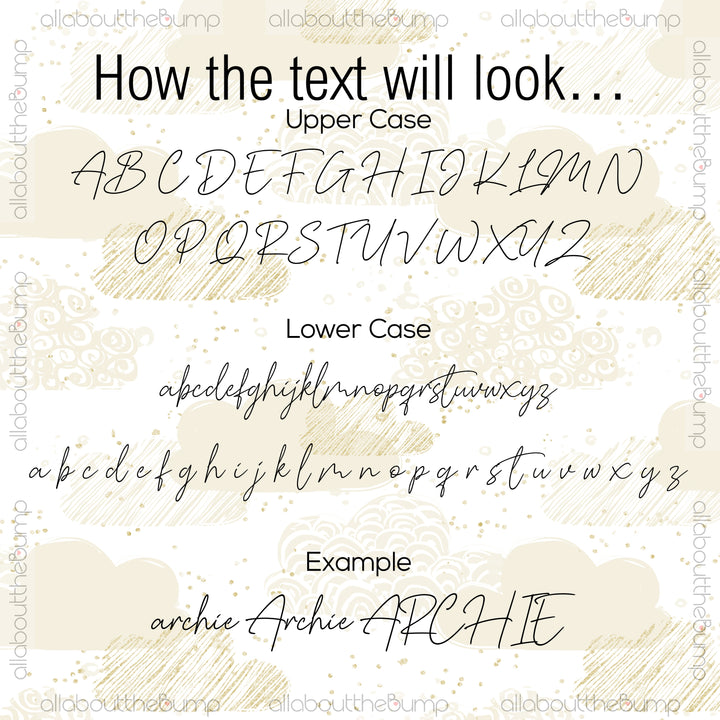 allabouttheBump allabouttheBump allabouttheBump
How the text will look...
Upper Case
ABCDEFGHIJKLMN
OPQRSTUVWXYZ
Lower Case
abcdefghijklmnopqrstuvwxyz
a b c d e f g h i j k l m n o p q r s t u v w x y z
Example
archie Archie ARCHIE
allabouttheBump allabouttheBump allabouttheBump
allabouttheBump
allabouttheBump
allabouttheBump
allabouttheBump
allabouttheBump
allabouttheBump